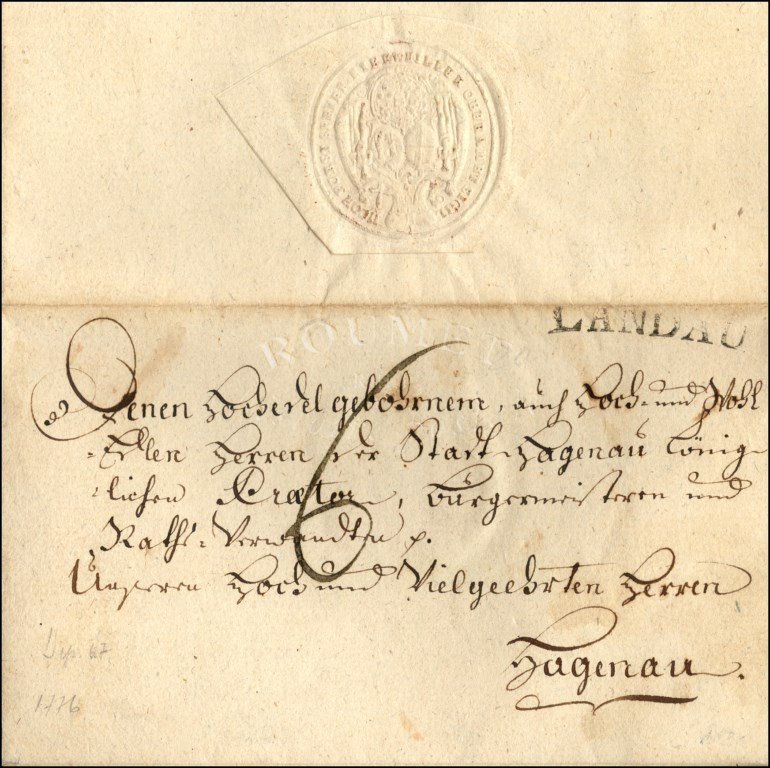 LANDAU
6
Denen Hochedelgebohrnem, auch Hoch- und Wohl
-Edlen Herren der Stadt Hagenau König-
-lichen Prætor, Burgermeisteren und
Raths-Verwandten p.
Unseren Hoch und Vielgeehrten Herren
Hagenau.
1776